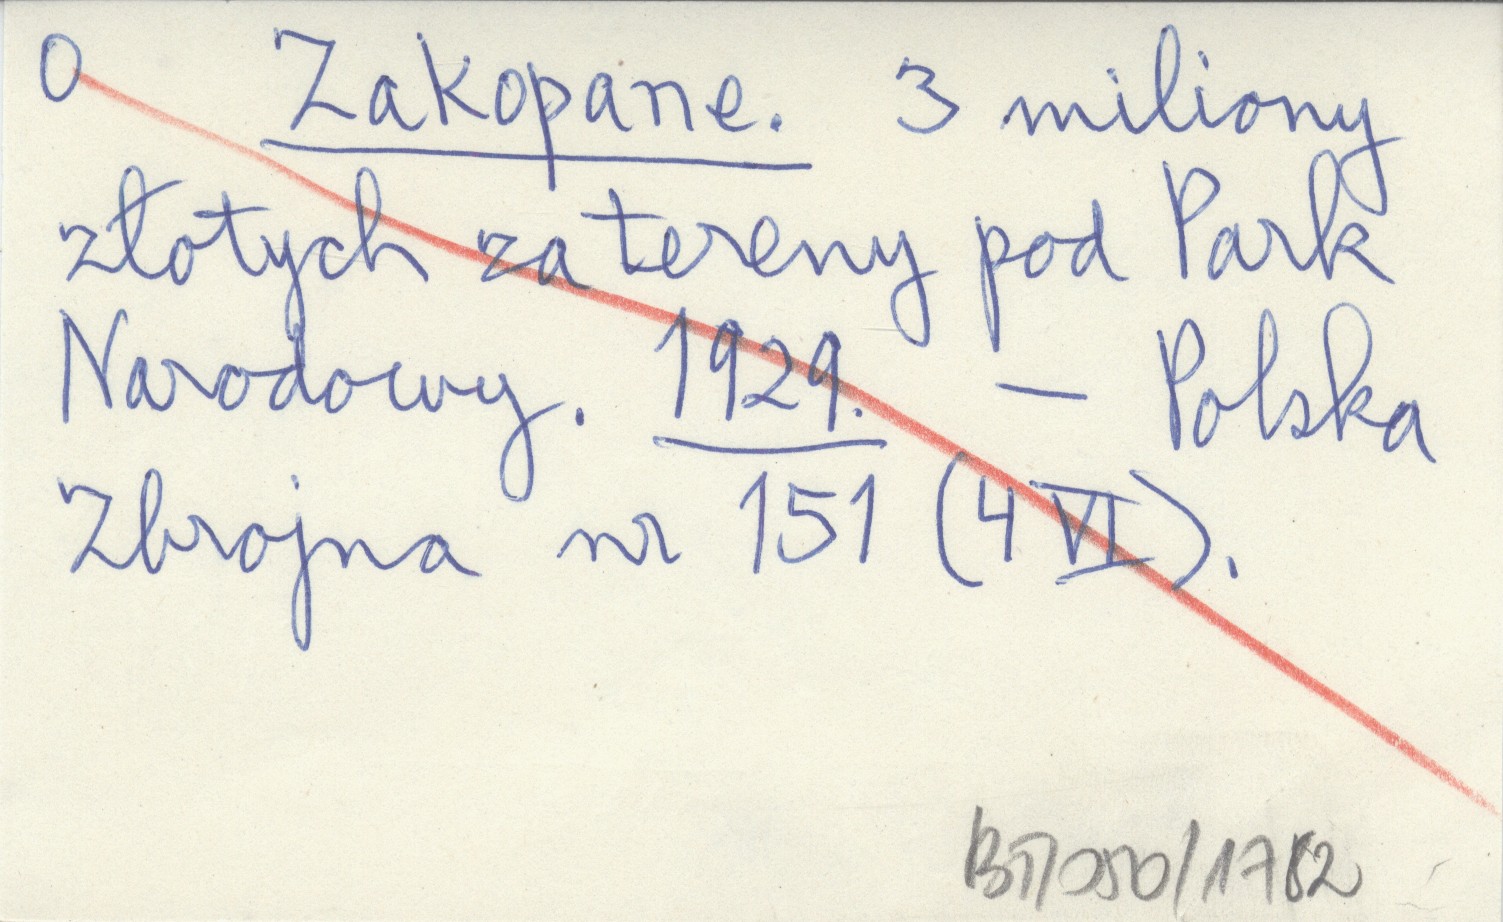 O Zakopane. 3 miliony
złotych za tereny pod Park
Narodowy. 1929. — Polska
Zbrojna nr 151 (4 VI).